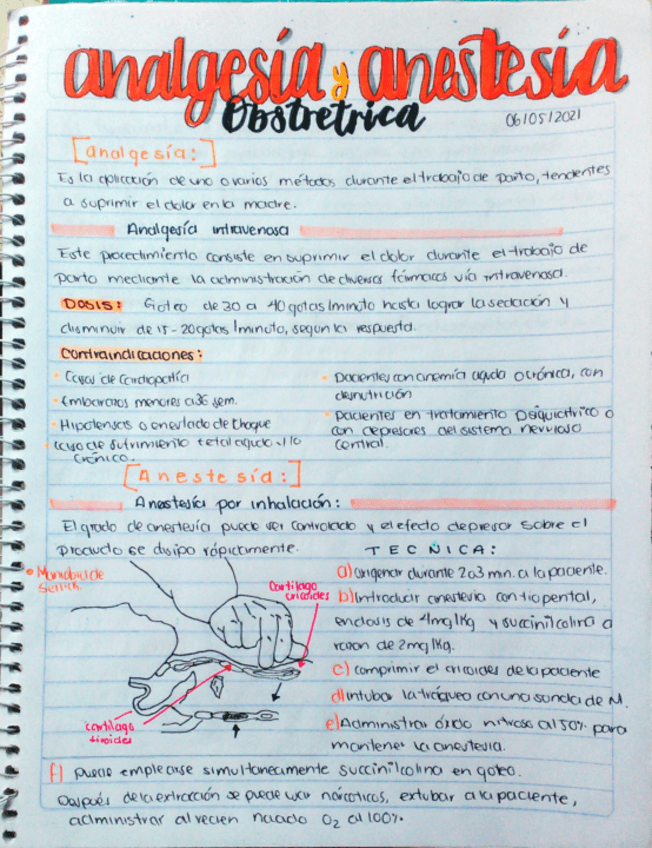 analgesía y anestesía
Obstretrica
06/05/2021
[analgesía:]
Es la aplicación de uno o varios métodos durante el trabajo de parto, tendentes
a suprimir el dolor en la madre.
Analgesía intravenosa
Este procedimiento consiste en suprimir el dolor durante el trabajo de
parto mediante la administración de diversos fármacos vía intravenosa.
Dosis: Goteo de 30 a 40 gotas/minuto hasta lograr la sedación y
disminuir de 15-20 gotas/minuto, según la respuesta.
Contraindicaciones:
Casos de cardiopatía
Embarazos menores a 36 sem.
Hipotensas o en estado de choque
caso de sufrimiento fetal agudo y/o
crónico.
Pacientes con anemia aguda o crónica, con
desnutrición
Pacientes en tratamiento psiquiátrico o
con depresores del sistema nervioso
central.
[Anestesía:]
Anestesía por inhalación:
El grado de anestesía puede ser controlado y el efecto depresor sobre el
producto se disipa rápidamente.
Maniobra de
Cartílago
cricoides
cartílago
tiroides
TECNICA:
a) Oxigenar durante 2 a 3 min. a la paciente.
b) Introducir anestesia con tiopental,
en dosis de 4mg/Kg y succinilcolina a
razon de 2mg/Kg.
c) comprimir el cricoides de la paciente
d) Intubar la tráquea con una sonda de M.
e) Administrar óxido nitroso al 50% para
mantener la anestesia.
f) puede emplearse simultaneamente succinilcolina en goteo.
Después de la extracción se puede usar narcóticos, extubar a la paciente,
administrar al recien nacido O2 al 100%.